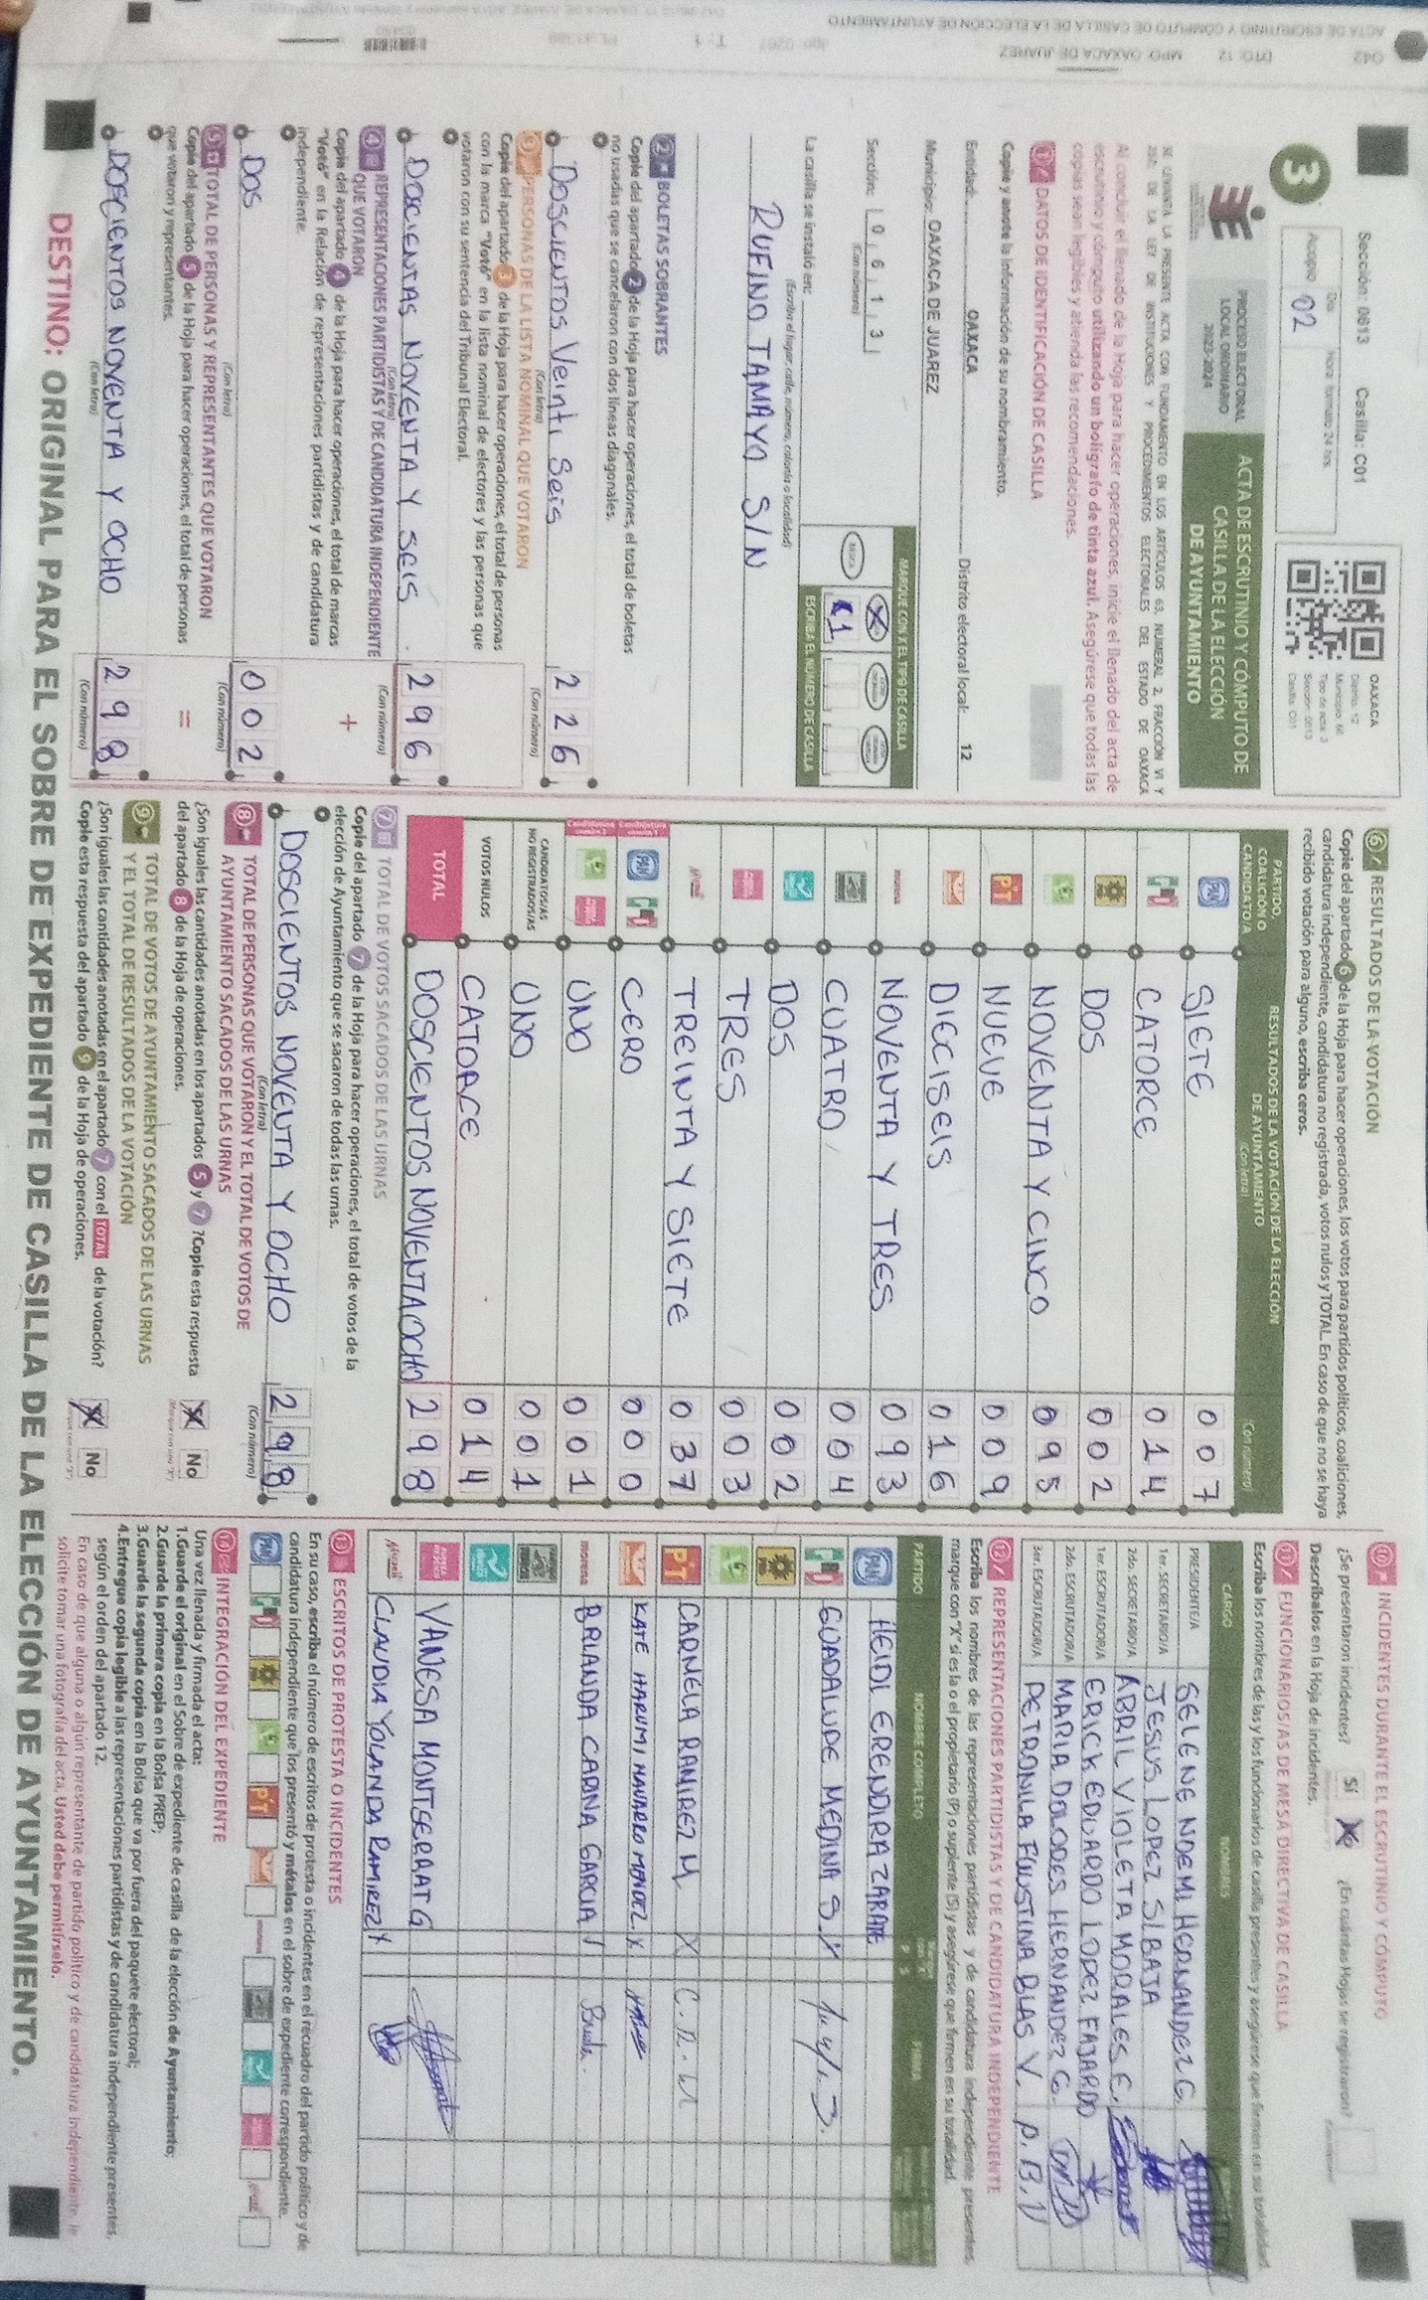 Sección: 0613 Casilla: C01
3
Acopio 02
Día Hora: formato 24 hrs.
OAXACA
Distrito: 12
Tipo de acta: 3
Sección: 0613
Casilla: C01
PROCESO ELECTORAL
LOCAL ORDINARIO
2023-2024
ACTA DE ESCRUTINIO Y CÓMPUTO DE
CASILLA DE LA ELECCIÓN
DE AYUNTAMIENTO
SE LEVANTA LA PRESENTE ACTA CON FUNDAMENTO EN LOS ARTÍCULOS 63, NUMERAL 2, FRACCIÓN VI Y
DE LA LEY DE INSTITUCIONES Y PROCEDIMIENTOS ELECTORALES DEL ESTADO DE OAXACA
Al concluir el llenado de la Hoja para hacer operaciones, inicie el llenado del acta de
escrutinio y cómputo utilizando un bolígrafo de tinta azul. Asegúrese que todas las
copias sean legibles y atienda las recomendaciones.
1 DATOS DE IDENTIFICACIÓN DE CASILLA
Copie y anote la información de su nombramiento.
Entidad: OAXACA Distrito electoral local: 12
Municipio: OAXACA DE JUAREZ
Sección: 0613
(Con número)
MARQUE CON X EL TIPO DE CASILLA
ESCRIBA EL NÚMERO DE CASILLA
C1
La casilla se instaló en:
(Escriba el lugar, calle, número, colonia o localidad)
RUFINO TAMAYO S/N
2 BOLETAS SOBRANTES
Copie del apartado 2 de la Hoja para hacer operaciones, el total de boletas
no usadas que se cancelaron con dos líneas diagonales.
Doscientos Veinti Seis 226
(Con letra) (Con número)
3 PERSONAS DE LA LISTA NOMINAL QUE VOTARON
Copie del apartado 3 de la Hoja para hacer operaciones, el total de personas
con la marca "Votó" en la lista nominal de electores y las personas que
votaron con su sentencia del Tribunal Electoral.
DOSCIENTAS NOVENTA Y SEIS 296
(Con letra) (Con número)
4 REPRESENTACIONES PARTIDISTAS Y DE CANDIDATURA INDEPENDIENTE
QUE VOTARON
Copie del apartado 4 de la Hoja para hacer operaciones, el total de marcas
"Votó" en la Relación de representaciones partidistas y de candidatura
independiente.
+
DOS 002
(Con letra) (Con número)
5 TOTAL DE PERSONAS Y REPRESENTANTES QUE VOTARON
Copie del apartado 5 de la Hoja para hacer operaciones, el total de personas
que votaron y representantes.
=
DOSCIENTOS NOVENTA Y OCHO 298
(Con letra) (Con número)
6 RESULTADOS DE LA VOTACIÓN
Copie del apartado 6 de la Hoja para hacer operaciones, los votos para partidos políticos, coaliciones,
candidatura independiente, candidatura no registrada, votos nulos y TOTAL. En caso de que no se haya
recibido votación para alguno, escriba ceros.
PARTIDO, COALICIÓN O CANDIDATO/A
RESULTADOS DE LA VOTACIÓN DE LA ELECCIÓN DE AYUNTAMIENTO
(Con letra) (Con número)
PAN SIETE 007
PRI CATORCE 014
PRD DOS 002
NOVENTA Y CINCO 095
PT NUEVE 009
DIECISEIS 016
morena NOVENTA Y TRES 093
CUATRO 004
DOS 002
TRES 003
TREINTA Y SIETE 037
Candidatura común 1 PAN PRI CERO 000
Candidatura común 2 UNO 001
CANDIDATOS/AS NO REGISTRADOS/AS UNO 001
VOTOS NULOS CATORCE 014
TOTAL DOSCIENTOS NOVENTA OCHO 298
7 TOTAL DE VOTOS SACADOS DE LAS URNAS
Copie del apartado 7 de la Hoja para hacer operaciones, el total de votos de la
elección de Ayuntamiento que se sacaron de todas las urnas.
DOSCIENTOS NOVENTA Y OCHO 298
(Con letra) (Con número)
8 TOTAL DE PERSONAS QUE VOTARON Y EL TOTAL DE VOTOS DE
AYUNTAMIENTO SACADOS DE LAS URNAS
¿Son iguales las cantidades anotadas en los apartados 5 y 7? Copie esta respuesta
del apartado 8 de la Hoja de operaciones.
X No
9 TOTAL DE VOTOS DE AYUNTAMIENTO SACADOS DE LAS URNAS
Y EL TOTAL DE RESULTADOS DE LA VOTACIÓN
¿Son iguales las cantidades anotadas en el apartado 7 con el TOTAL de la votación?
Copie esta respuesta del apartado 9 de la Hoja de operaciones.
X No
10 INCIDENTES DURANTE EL ESCRUTINIO Y CÓMPUTO
¿Se presentaron incidentes? Sí X ¿En cuántas Hojas se registraron?
Descríbalos en la Hoja de incidentes.
11 FUNCIONARIOS/AS DE MESA DIRECTIVA DE CASILLA
Escriba los nombres de las y los funcionarios de casilla presentes y asegúrese que firmen en su totalidad.
CARGO NOMBRES
PRESIDENTE/A SELENE NOEMI HERNANDEZ G.
1er. SECRETARIO/A JESUS LOPEZ SIBAJA
2do. SECRETARIO/A ABRIL VIOLETA MORALES E.
1er. ESCRUTADOR/A ERICK EDUARDO LOPEZ FAJARDO
2do. ESCRUTADOR/A MARIA DOLORES HERNANDEZ G.
3er. ESCRUTADOR/A PETRONILA FAUSTINA BLAS V. P.B.V
12 REPRESENTACIONES PARTIDISTAS Y DE CANDIDATURA INDEPENDIENTE
Escriba los nombres de las representaciones partidistas y de candidatura independiente presentes,
marque con "X" si es la o el propietario (P) o suplente (S) y asegúrese que firmen en su totalidad.
PARTIDO NOMBRE COMPLETO P S FIRMA
PAN HEIDI ERENDIRA ZARATE
PRI GUADALUPE MEDINA S. X
PT CARMELA RAMIREZ M X C.R.M
KATE HARUMI NAVARRO MENDEZ. X
morena BRIANDA CARINA GARCIA
VANESA MONTSERRAT G
CLAUDIA YOLANDA RAMIREZ X
13 ESCRITOS DE PROTESTA O INCIDENTES
En su caso, escriba el número de escritos de protesta o incidentes en el recuadro del partido político y de
candidatura independiente que los presentó y métalos en el sobre de expediente correspondiente.
14 INTEGRACIÓN DEL EXPEDIENTE
Una vez llenada y firmada el acta:
1.Guarde el original en el Sobre de expediente de casilla de la elección de Ayuntamiento;
2.Guarde la primera copia en la Bolsa PREP;
3.Guarde la segunda copia en la Bolsa que va por fuera del paquete electoral;
4.Entregue copia legible a las representaciones partidistas y de candidatura independiente presentes,
según el orden del apartado 12.
En caso de que alguna o algún representante de partido político y de candidatura independiente, le
solicite tomar una fotografía del acta, Usted debe permitírselo.
DESTINO: ORIGINAL PARA EL SOBRE DE EXPEDIENTE DE CASILLA DE LA ELECCIÓN DE AYUNTAMIENTO.
042 DTO: 12 MPO: OAXACA DE JUAREZ
ACTA DE ESCRUTINIO Y CÓMPUTO DE CASILLA DE LA ELECCIÓN DE AYUNTAMIENTO